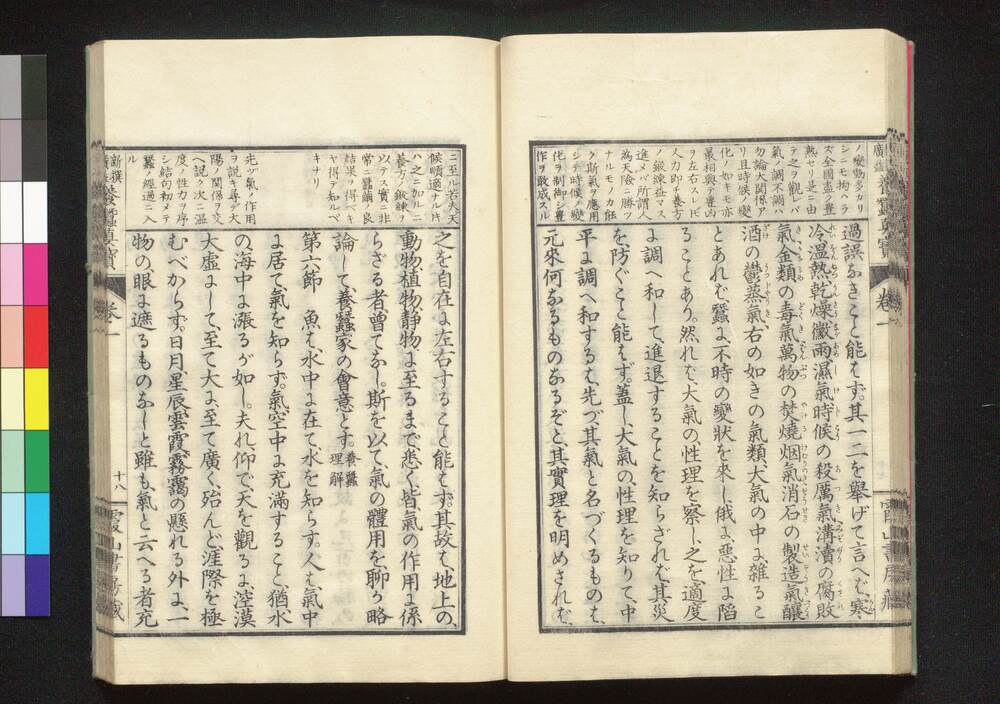 過誤なきこと能はず。其一二を舉げて言へば、寒
冷温熱乾燥黴雨濕氣時候の殺厲氣溝瀆の腐敗
氣金類の毒氣萬物の焚燒烟氣消石の製造氣釀
酒の鬱蒸氣右の如きの氣類大氣の中に雜るこ
とあれば蠶に不時の變狀を來し俄に惡性に陷
ることあり。然れば大氣の性理を察し之を適度
に調へ和して進退することを知らざれば其災
を防ぐこと能はず。蓋し大氣の性理を知りて中
平に調へ和するは先づ其氣と名づくるものは
元來何なるものなるぞと其實理を明めざれば
ノ變動多カリ
シニモ拘ハラ
ズ全國盡ク豐
熟セリ是ニ由
テ之ヲ觀レバ
氣ノ調不調ハ
勿論大關係ア
リ且時候ノ變
化ノ如キモ亦
最相與テ豐凶
ヲ左右スレドモ
人力卽チ養方
ノ鍛鍊益マス
進メバ所謂人
為天險ニ勝ツ
ナルモノカ能
ク斯氣ヲ應用
シテ時候ノ變
化ヲ制御シ豐
作ヲ敢成スル
卷一
霞山書房藏
之を自在に左右すること能はず。其故は地上の、
動物植物靜物に至るまで悉く皆氣の作用に係
らざる者曾てなし。斯を以て氣の體用を聊か略
論して、養蠶家の會意とす。養蠶理解
第六節　魚は水中に在て、水を知らず。人は氣中
に居て、氣を知らず。氣空中に充滿すること、猶水
の、海中に漲るが如し。夫れ仰で天を觀るに、空漠
太虛にして、至て大に、至て廣く、殆んど涯際を極
むべからず。日月星辰雲霞霧靄の懸れる外に、一
物の、眼に遮るものなしと雖も、氣と云へる者充
ニ至ル若夫天
候順適ナルトキ
ハ之ニ加ルニ
養方ノ鍛鍊ヲ
以テス實ニ非
常ニ蠶繭ノ良
結果ハ得ベキ
ヤ得テ知ルベ
キナリ
先ヅ氣ノ作用
ヲ說キ尋デ大
陽ノ關係ヲ交
ヘ說ク次ニ温
度ノ性力ヲ序
シ結句初メテ
蠶ノ經過ニ入
ル
新撰養蠶眞寶
卷一
十八
霞山書房藏